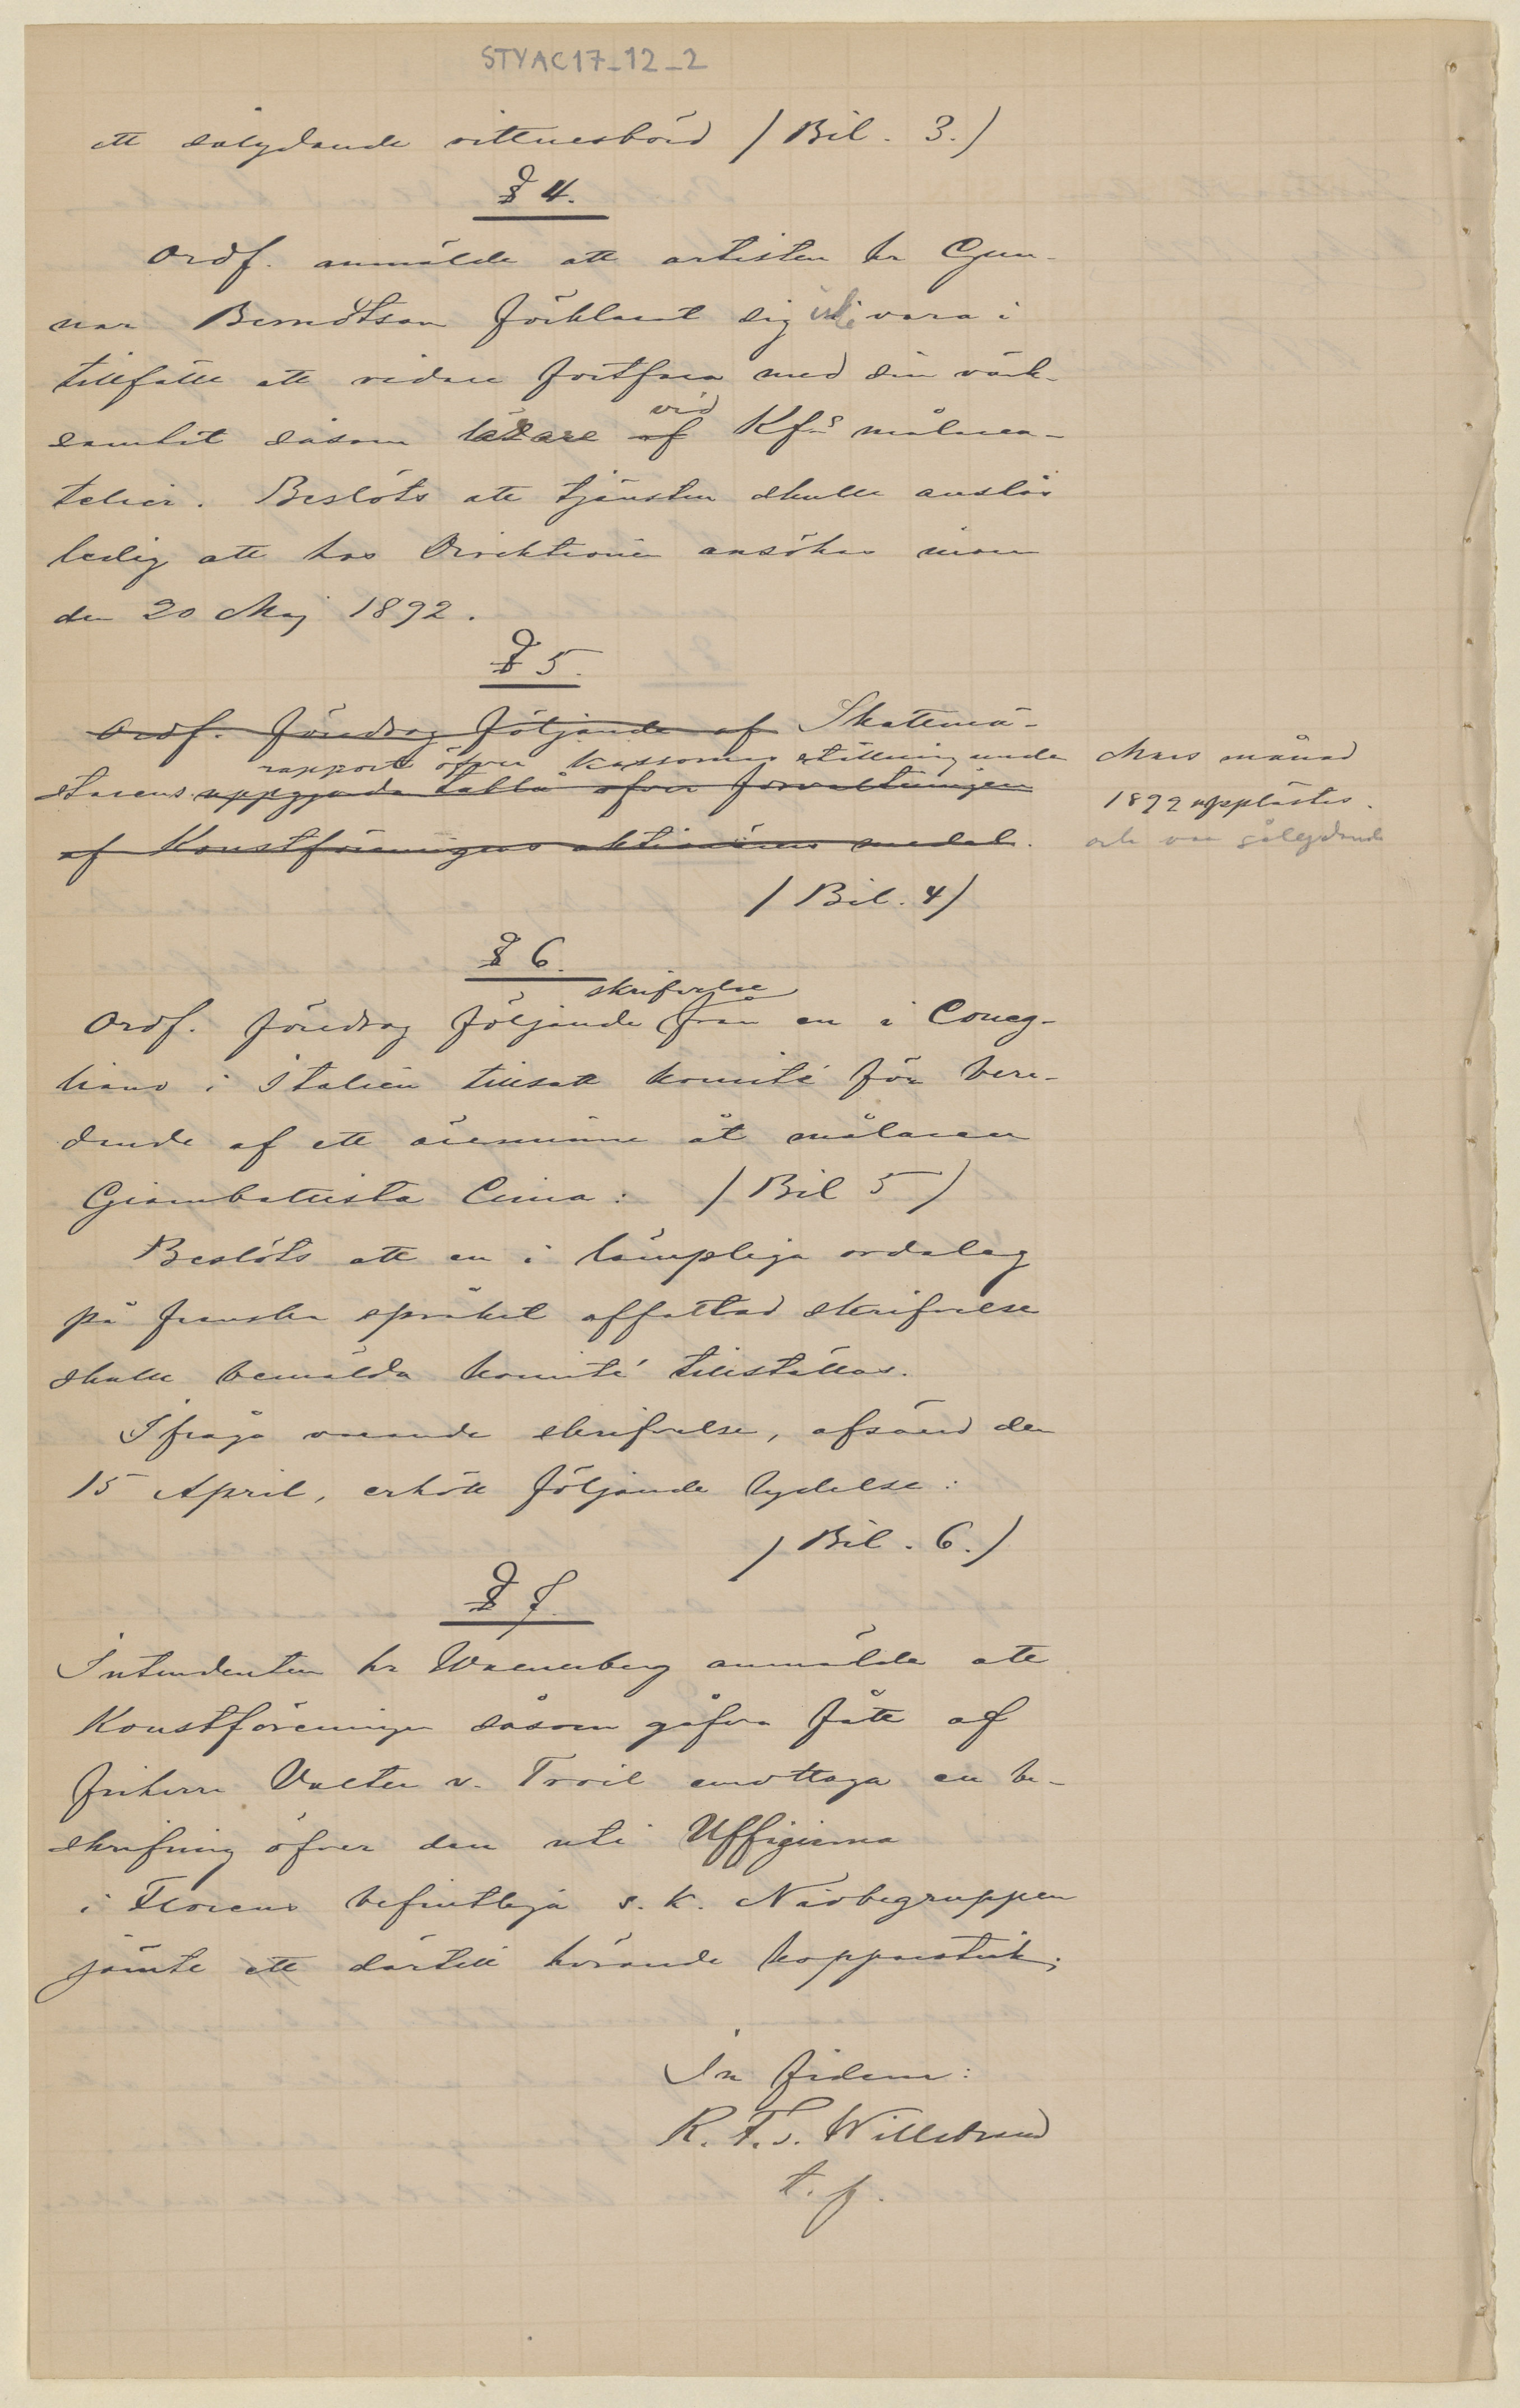 STYAC17_12_2
ett sålydande vittnesbörd / Bil. 3. /
§ 4.
Ordf. anmälde att artisten hr Gun-
nar Berndtson förklarat sig icke vara i
tillfälle att vidare fortfara med sin värk-
samhet såsom lärare af vid Kfs målarea-
telier. Beslöts att tjänsten skulle anslås
ledig att hos Direktionen ansökas inom
den 20 Maj 1892.
§ 5.
Ordf. föredrog följande af Skattmä-
rapport öfver kassornas ställning under Mars månad
starens uppgjorda tablå öfver förvaltningen 1892 upplästes.
af Konstföreningens aktionärers medel. och var sålydande
/ Bil. 4 /
§ 6.
skrifvelse
Ordf. föredrog följande från en i Coneg-
liano i Italien tillsatt komité för bere-
dande af ett äreminne åt målaren
Giambattista Cima: / Bil 5 /
Beslöts att en i lämpliga ordalag
på franska språket affattad skrifvelse
skulle bemälda komité tillställas.
I fråga varande skrifvelse, afsänd den
15 April, erhöll följande lydelse:
/ Bil. 6. /
§ 7.
Intendenten hr Waenerberg anmälde att
Konstföreningen såsom gåfva fått af
friherre Valter v. Troil emottaga en be-
skrifning öfver den uti Uffizierna
i Florens befintliga s. k. Niobegruppen
jämte ett därtill hörande kopparstick;
In fidem:
R. F. S. Willebrand
t. f.